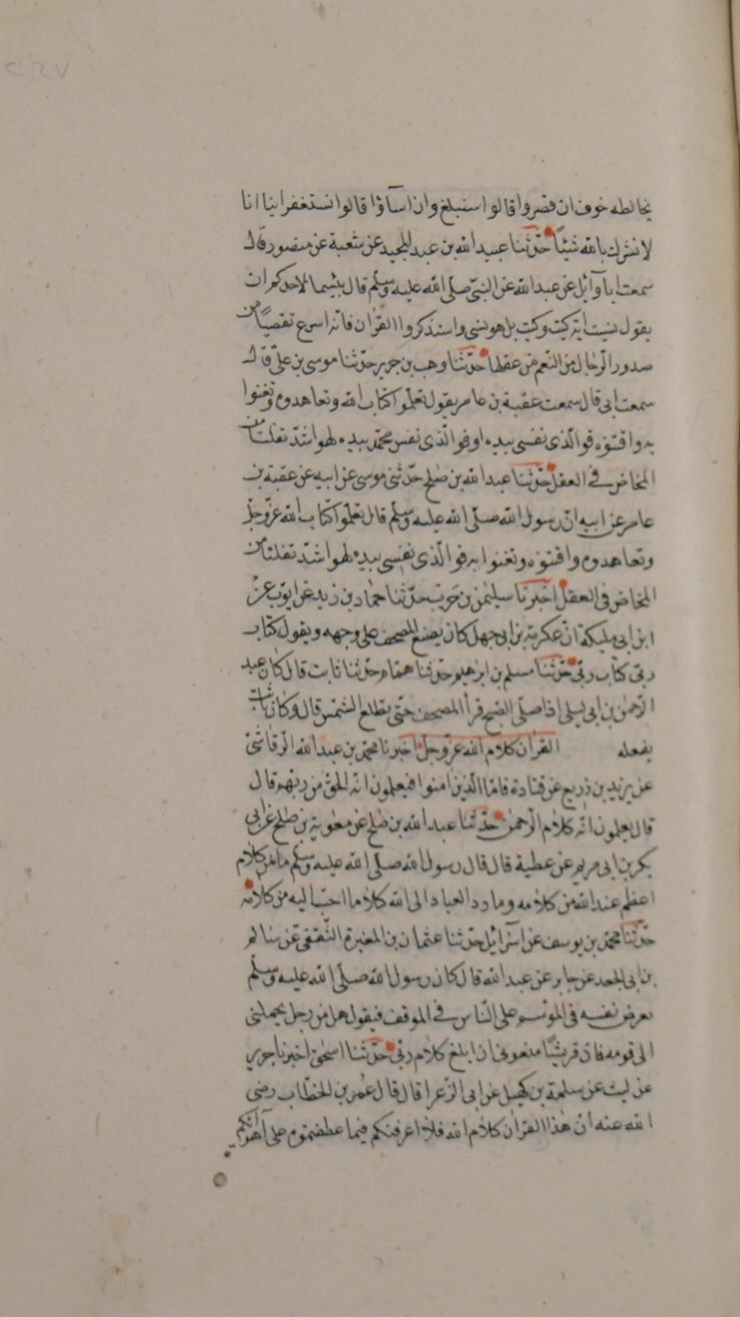 يخالطه خوف ان قصروا قالوا سنبلغ وان اساؤا قالوا سنستغفر لنا انا
لا نشرك بالله شيئا حدثنا عبيد الله بن عبد المجيد عن شعبة عن منصور قال
سمعت ابا وآئل عن عبد الله عن النبى صلى الله عليه وسلم قال بئسما لاحدكم ان
يقول نسيت اية كيت وكيت بل هو نسى واستذكروا القرأن فانه اسرع تفصيا من
صدور الرجال من النعم من عقلها حدثنا وهب بن جرير حدثنا موسى بن على قال
سمعت ابى قال سمعت عقبة بن عامر يقول تعلموا كتاب الله وتعاهدوه وتغنوا
به واقتنوه فوالذى نفسى بيده او فوالذى نفس محمد بيده لهو اشد تفلتا من
المخاض فى العقل حدثنا عبد الله بن صلح حدثنى موسى عن ابيه عن عقبة بن
عامر عن ابيه ان رسول الله صلى الله عليه وسلم قال تعلموا كتاب الله عز وجل
وتعاهدوه واقتنوه وتغنوا به فوالذى نفسى بيده لهو اشد تفلتا من
المخاض فى العقل اخبرنا سليمن بن حرب حدثنا حماد بن زيد عن ايوب عن
ابن ابى مليكة ان عكرمة بن ابى جهل كان يضع المصحف على وجهه ويقول كتاب
ربى كتاب ربى حدثنا مسلم بن ابرهيم حدثنا همام حدثنا ثابت قال كان عبد
الرحمن بن ابى ليلى اذا صلى الصبح قرأ المصحف حتى يطلع الشمس قال وكان ثابت
يفعله القرأن كلام الله عز وجل اخبرنا محمد بن عبد الله الرقاشى
عن يزيد بن زريع عن قتادة فاما الذين امنوا فيعلمون انه الحق من ربهم قال
قال يعلمون انه كلام الرحمن حدثنا عبد الله بن صلح عن معوية بن صلح عن ابى
بكر بن ابى مريم عن عطية قال قال رسول الله صلى الله عليه وسلم ما من كلام
اعظم عند الله من كلامه وما رد العباد الى الله كلاما احب اليه من كلامه
حدثنا محمد بن يوسف عن اسرآئيل حدثنا عثمان بن المغيرة الثقفى عن سالم
بن ابى الجعد عن جابر عن عبد الله قال كان رسول الله صلى الله عليه وسلم
يعرض نفسه فى الموسم على الناس فى الموقف فيقول هل من رجل يحملنى
الى قومه فان قريشا منعونى ان ابلغ كلام ربى حدثنا اسحق اخبرنا جرير
عن ليث عن سلمة بن كهيل عن ابى الزعرا قال قال عمر بن الخطاب رضى
الله عنه ان هذا القرأن كلام الله فلا اعرفنكم فيما عطفتموه على اهوائكم